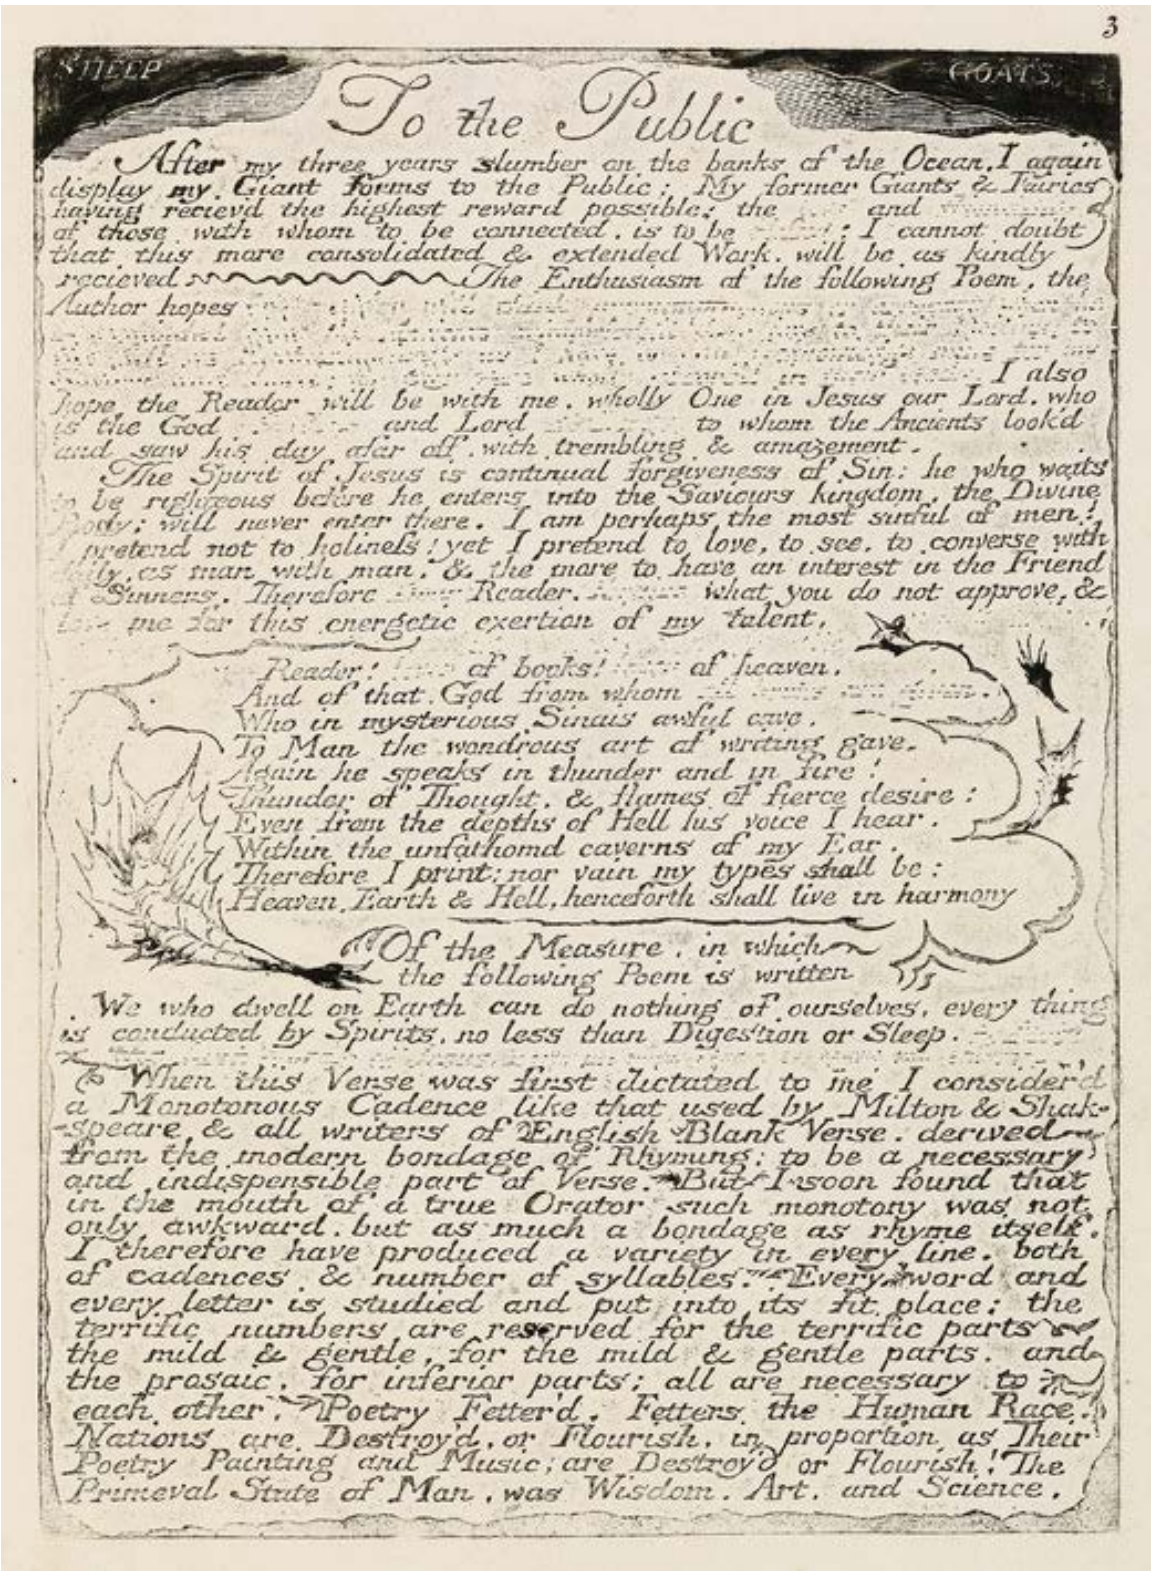 3
SHEEP
GOATS
To the Public
After my three years slumber on the banks of the Ocean, I again
display my Giant forms to the Public: My former Giants & Fairies
having reciev'd the highest reward possible: the and
of those with whom to be connected, is to be : I cannot doubt
that this more consolidated & extended Work, will be as kindly
recieved The Enthusiasm of the following Poem, the
Author hopes
I also
hope the Reader will be with me, wholly One in Jesus our Lord, who
is the God and Lord to whom the Ancients look'd
and saw his day afar off, with trembling & amazement.
The Spirit of Jesus is continual forgiveness of Sin: he who waits
to be righteous before he enters into the Saviours kingdom, the Divine
Body; will never enter there. I am perhaps the most sinful of men!
I pretend not to holiness! yet I pretend to love, to see, to converse with
daily, as man with man, & the more to have an interest in the Friend
of Sinners. Therefore Reader, what you do not approve, &
me for this energetic exertion of my talent.
Reader! of books! of heaven,
And of that God from whom
Who in mysterious Sinais awful cave,
To Man the wondrous art of writing gave,
Again he speaks in thunder and in fire!
Thunder of Thought, & flames of fierce desire:
Even from the depths of Hell his voice I hear,
Within the unfathomd caverns of my Ear.
Therefore I print; nor vain my types shall be:
Heaven, Earth & Hell, henceforth shall live in harmony
Of the Measure, in which
the following Poem is written
We who dwell on Earth can do nothing of ourselves, every thing
is conducted by Spirits, no less than Digestion or Sleep.
When this Verse was first dictated to me I consider'd
a Monotonous Cadence like that used by Milton & Shak-
-speare, & all writers of English Blank Verse, derived
from the modern bondage of Rhyming; to be a necessary
and indispensible part of Verse. But I soon found that
in the mouth of a true Orator such monotony was not
only awkward, but as much a bondage as rhyme itself.
I therefore have produced a variety in every line, both
of cadences & number of syllables. Every word and
every letter is studied and put into its fit place: the
terrific numbers are reserved for the terrific parts
the mild & gentle, for the mild & gentle parts, and
the prosaic, for inferior parts; all are necessary to
each other. Poetry Fetter'd, Fetters the Human Race.
Nations are Destroy'd, or Flourish, in proportion as Their
Poetry Painting and Music; are Destroy'd or Flourish! The
Primeval State of Man, was Wisdom, Art, and Science.